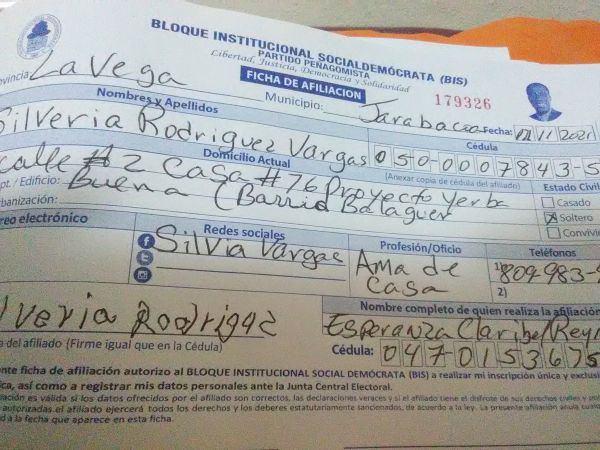 BLOQUE INSTITUCIONAL SOCIALDEMÓCRATA (BIS)
PARTIDO PEÑAGOMISTA
Libertad, Justicia, Democracia y Solidaridad
FICHA DE AFILIACIÓN
179326
ovincia: La Vega Municipio: Jarabacoa Fecha: 11 2021
Nombres y Apellidos Cédula
Silveria Rodriguez Vargas 050-0007843-5
Domicilio Actual (Anexar copia de cédula del afiliado) Estado Civil
calle #2 Casa #76 Proyecto yerba
pt. / Edificio: Buena (Barrio Balaguer Casado
banización: Soltero
Convivi
reo electrónico Redes sociales Profesión/Oficio Teléfonos
Silvia Vargas Ama de casa 1) 809-983-
2)
lveria Rodrigez
Nombre completo de quien realiza la afiliación
Esperanza Claribel Rey
a del afiliado (Firme igual que en la Cédula) Cédula: 047-0153675
nte ficha de afiliación autorizo al BLOQUE INSTITUCIONAL SOCIAL DEMÓCRATA (BIS) a realizar mi inscripción única y exclus
ica, así como a registrar mis datos personales ante la Junta Central Electoral.
iación es válida si los datos ofrecidos por el afiliado son correctos, las declaraciones veraces y si el afiliado tiene el disfrute de sus derechos civiles y
autorizadas el afiliado ejercerá todos los derechos y los deberes estatutariamente sancionados, de acuerdo a la ley. La presente afiliación anula cualq
d a la fecha que aparece en esta ficha.